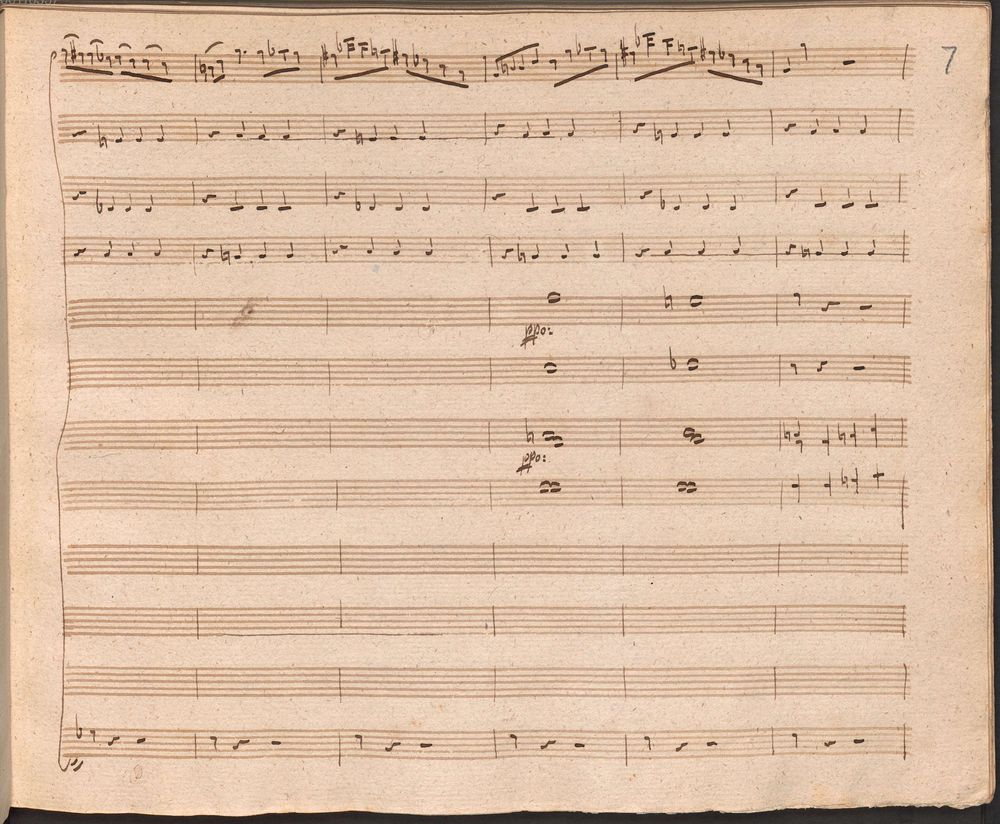 7
ppo:
ppo: